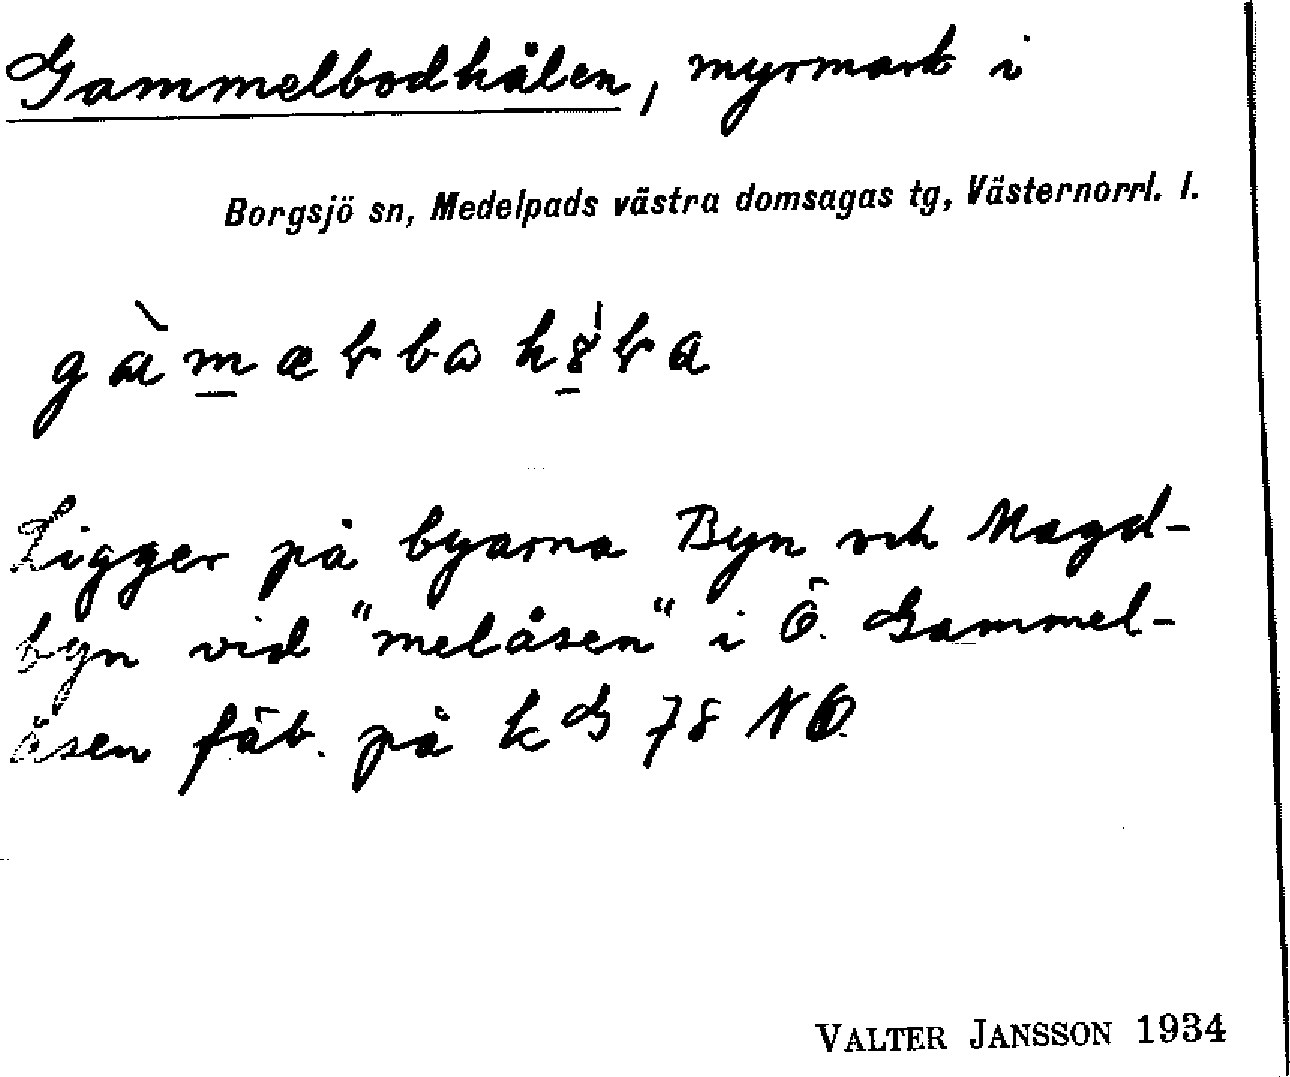 Gammelbodhålen, myrmark i
Borgsjö sn, Medelpads västra domsagas tg, Västernorrl. l.
Ligger på byarna Byn och Magd-
byn vid "melåsen" i Ö. Gammel-
åsen fäb. på k G 78 NÖ.
VALTER JANSSON 1934